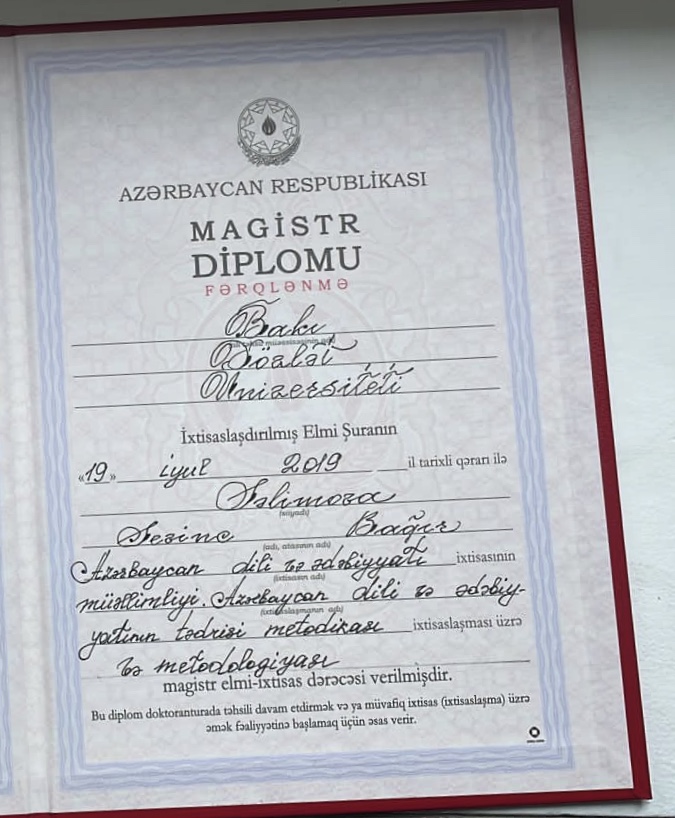 AZƏRBAYCAN RESPUBLİKASI
MAGİSTR
DİPLOMU
FƏRQLƏNMƏ
Bakı
Dövlət
Universiteti
İxtisaslaşdırılmış Elmi Şuranın
«19» iyul 2019 il tarixli qərarı ilə
Səlimova
(soyadı)
Sevinc Bağır
(adı, atasının adı)
Azərbaycan dili və ədəbiyyatı ixtisasının
(ixtisasın adı)
müəllimliyi. Azərbaycan dili və ədəbiy-
(ixtisaslaşmanın adı)
yatının tədrisi metodikası ixtisaslaşması üzrə
və metodologiyası
magistr elmi-ixtisas dərəcəsi verilmişdir.
Bu diplom doktoranturada təhsili davam etdirmək və ya müvafiq ixtisas (ixtisaslaşma) üzrə
əmək fəaliyyətinə başlamaq üçün əsas verir.